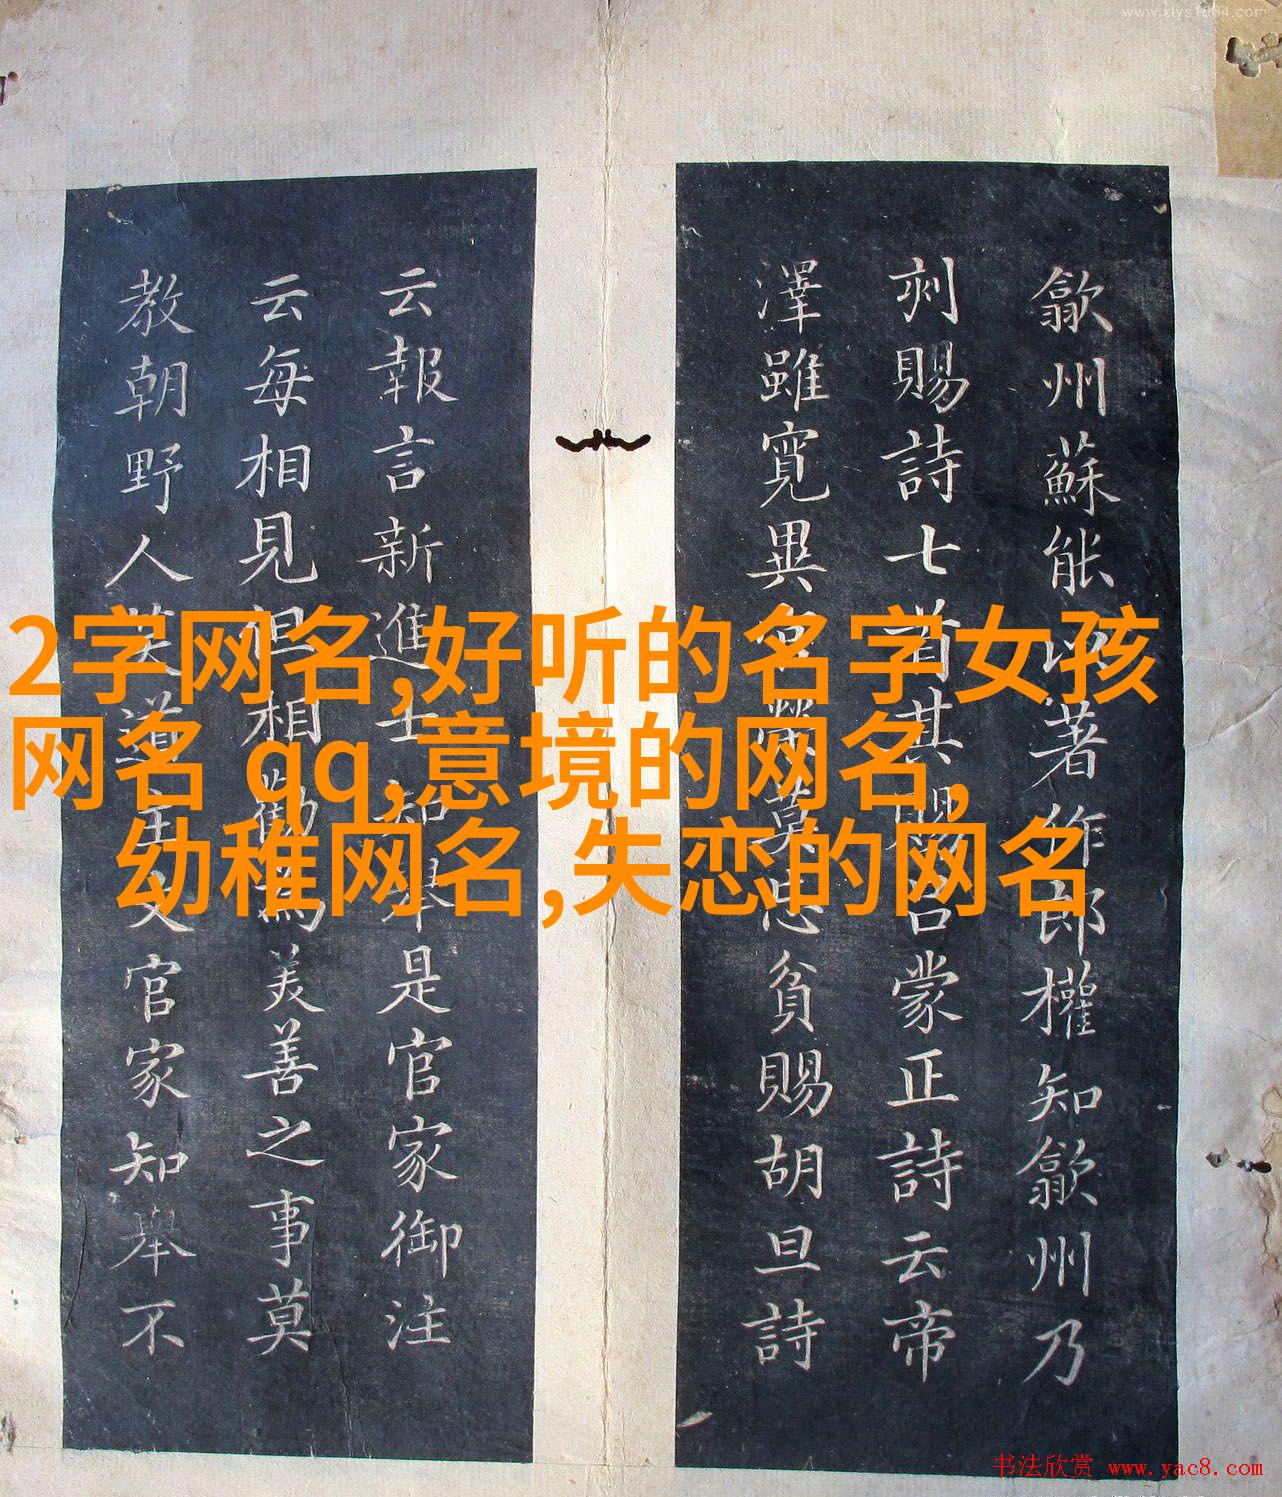 歙州蘇能以著作郎權知歙州乃
刺賜詩七首其賜呂蒙正詩云帝
澤雖寬異榮莫忘貧賜胡旦詩
云報言新進士知舉是官家御注
云每相見但相勸為美善之事莫
教朝野人笑道主文官家知舉不
2字网名,好听的名字女孩
网名 qq,意境的网名,
幼稚网名,失恋的网名
书法欣赏 www.yac8.com